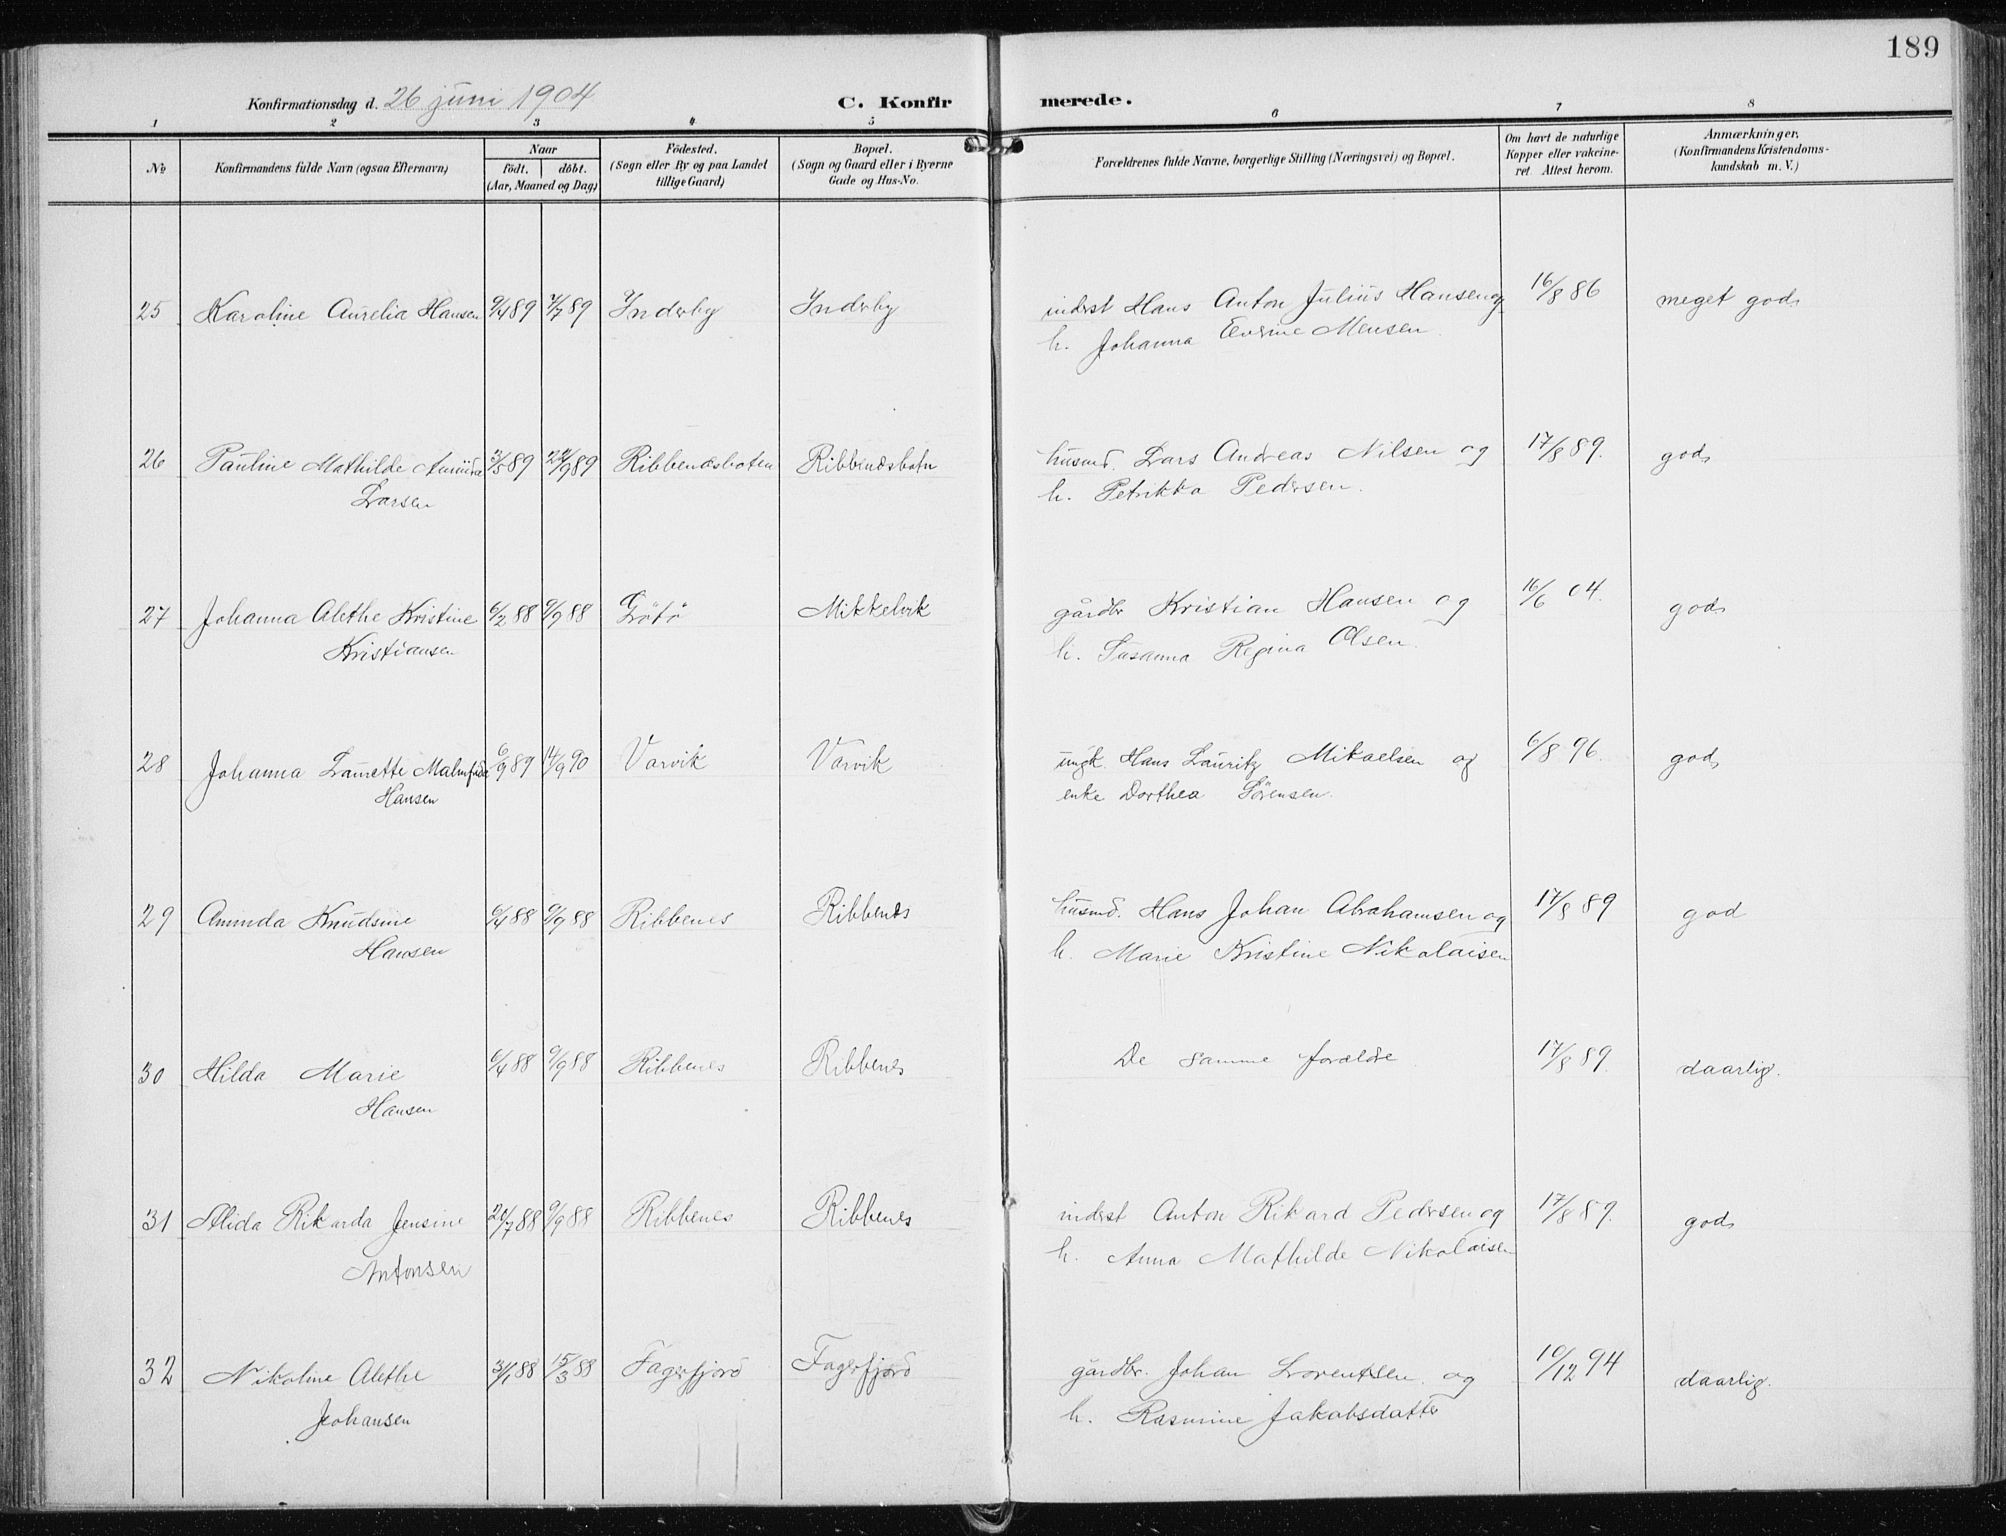 189
Konfirmationsdag d. 26 juni 1904
C. Konfirmerede.
1 2 3 4 5 6 7 8
No
Konfirmandens fulde Navn (ogsaa Efternavn)
Naar
födt. döbt.
(Aar, Maaned og Dag)
Födested.
(Sogn eller By og paa Landet
tillige Gaard)
Bopæl.
(Sogn og Gaard eller i Byerne
Gade og Hus-No.
Forældrenes fulde Navne, borgerlige Stilling (Næringsvei) og Bopæl.
Om havt de naturlige
Kopper eller vakcine-
ret. Attest herom.
Anmærkninger.
(Konfirmandens Kristendoms-
kundskab m. V.)
25 Karoline Aurelia Hansen 9/4 89 7/7 89 Inderby Inderby inderst Hans Anton Julius Hansen og 16/8 86 meget god
h. Johanna Mensen.
26 Pauline Mathilde 3/5 89 22/9 89 Ribbenesboten Ribbenesbotn husmd. Lars Andreas Nilsen og 17/8 89. god
Larsen h. Petrikka Pedersen.
27 Johanna Alethe Kristine 6/2 88 9/9 88 Grötö Mikkelvik gårdbr Kristian Hansen og 16/6 04. god
Kristiansen h. Susanna Regina Olsen.
28 Johanna Laurette Malmfrida 6/9 89 14/9 90 Vorvik Vorvik ungk. Hans Lauritz Mikaelsen og 6/8 96. god
Hansen enke Dorthea Sörensen.
29 Aminda Knudsine 6/4 88 9/9 88 Ribbenes Ribbenes husmd. Hans Johan Abrahamsen og 17/8 89 god
Hansen h. Marie Kristine Nikolaisen
30 Hilda Marie 6/4 88 9/9 88 Ribbenes Ribbenes De samme forældre 17/8 89. daarlig.
Hansen
31 Alida Rikarda Jensine 20/7 88 9/9 88 Ribbenes Ribbenes inderst Anton Rikard Pedersen og 17/8 89. god
Antonsen h. Anna Mathilde Nikolaisen
32 Nikoline Alethe 3/1 88 15/3 88 Fagerfjord Fagerfjord gårdbr. Johan Lorentsen og 10/12 94 daarlig.
Johansen h. Rasmine Jakobsdatter